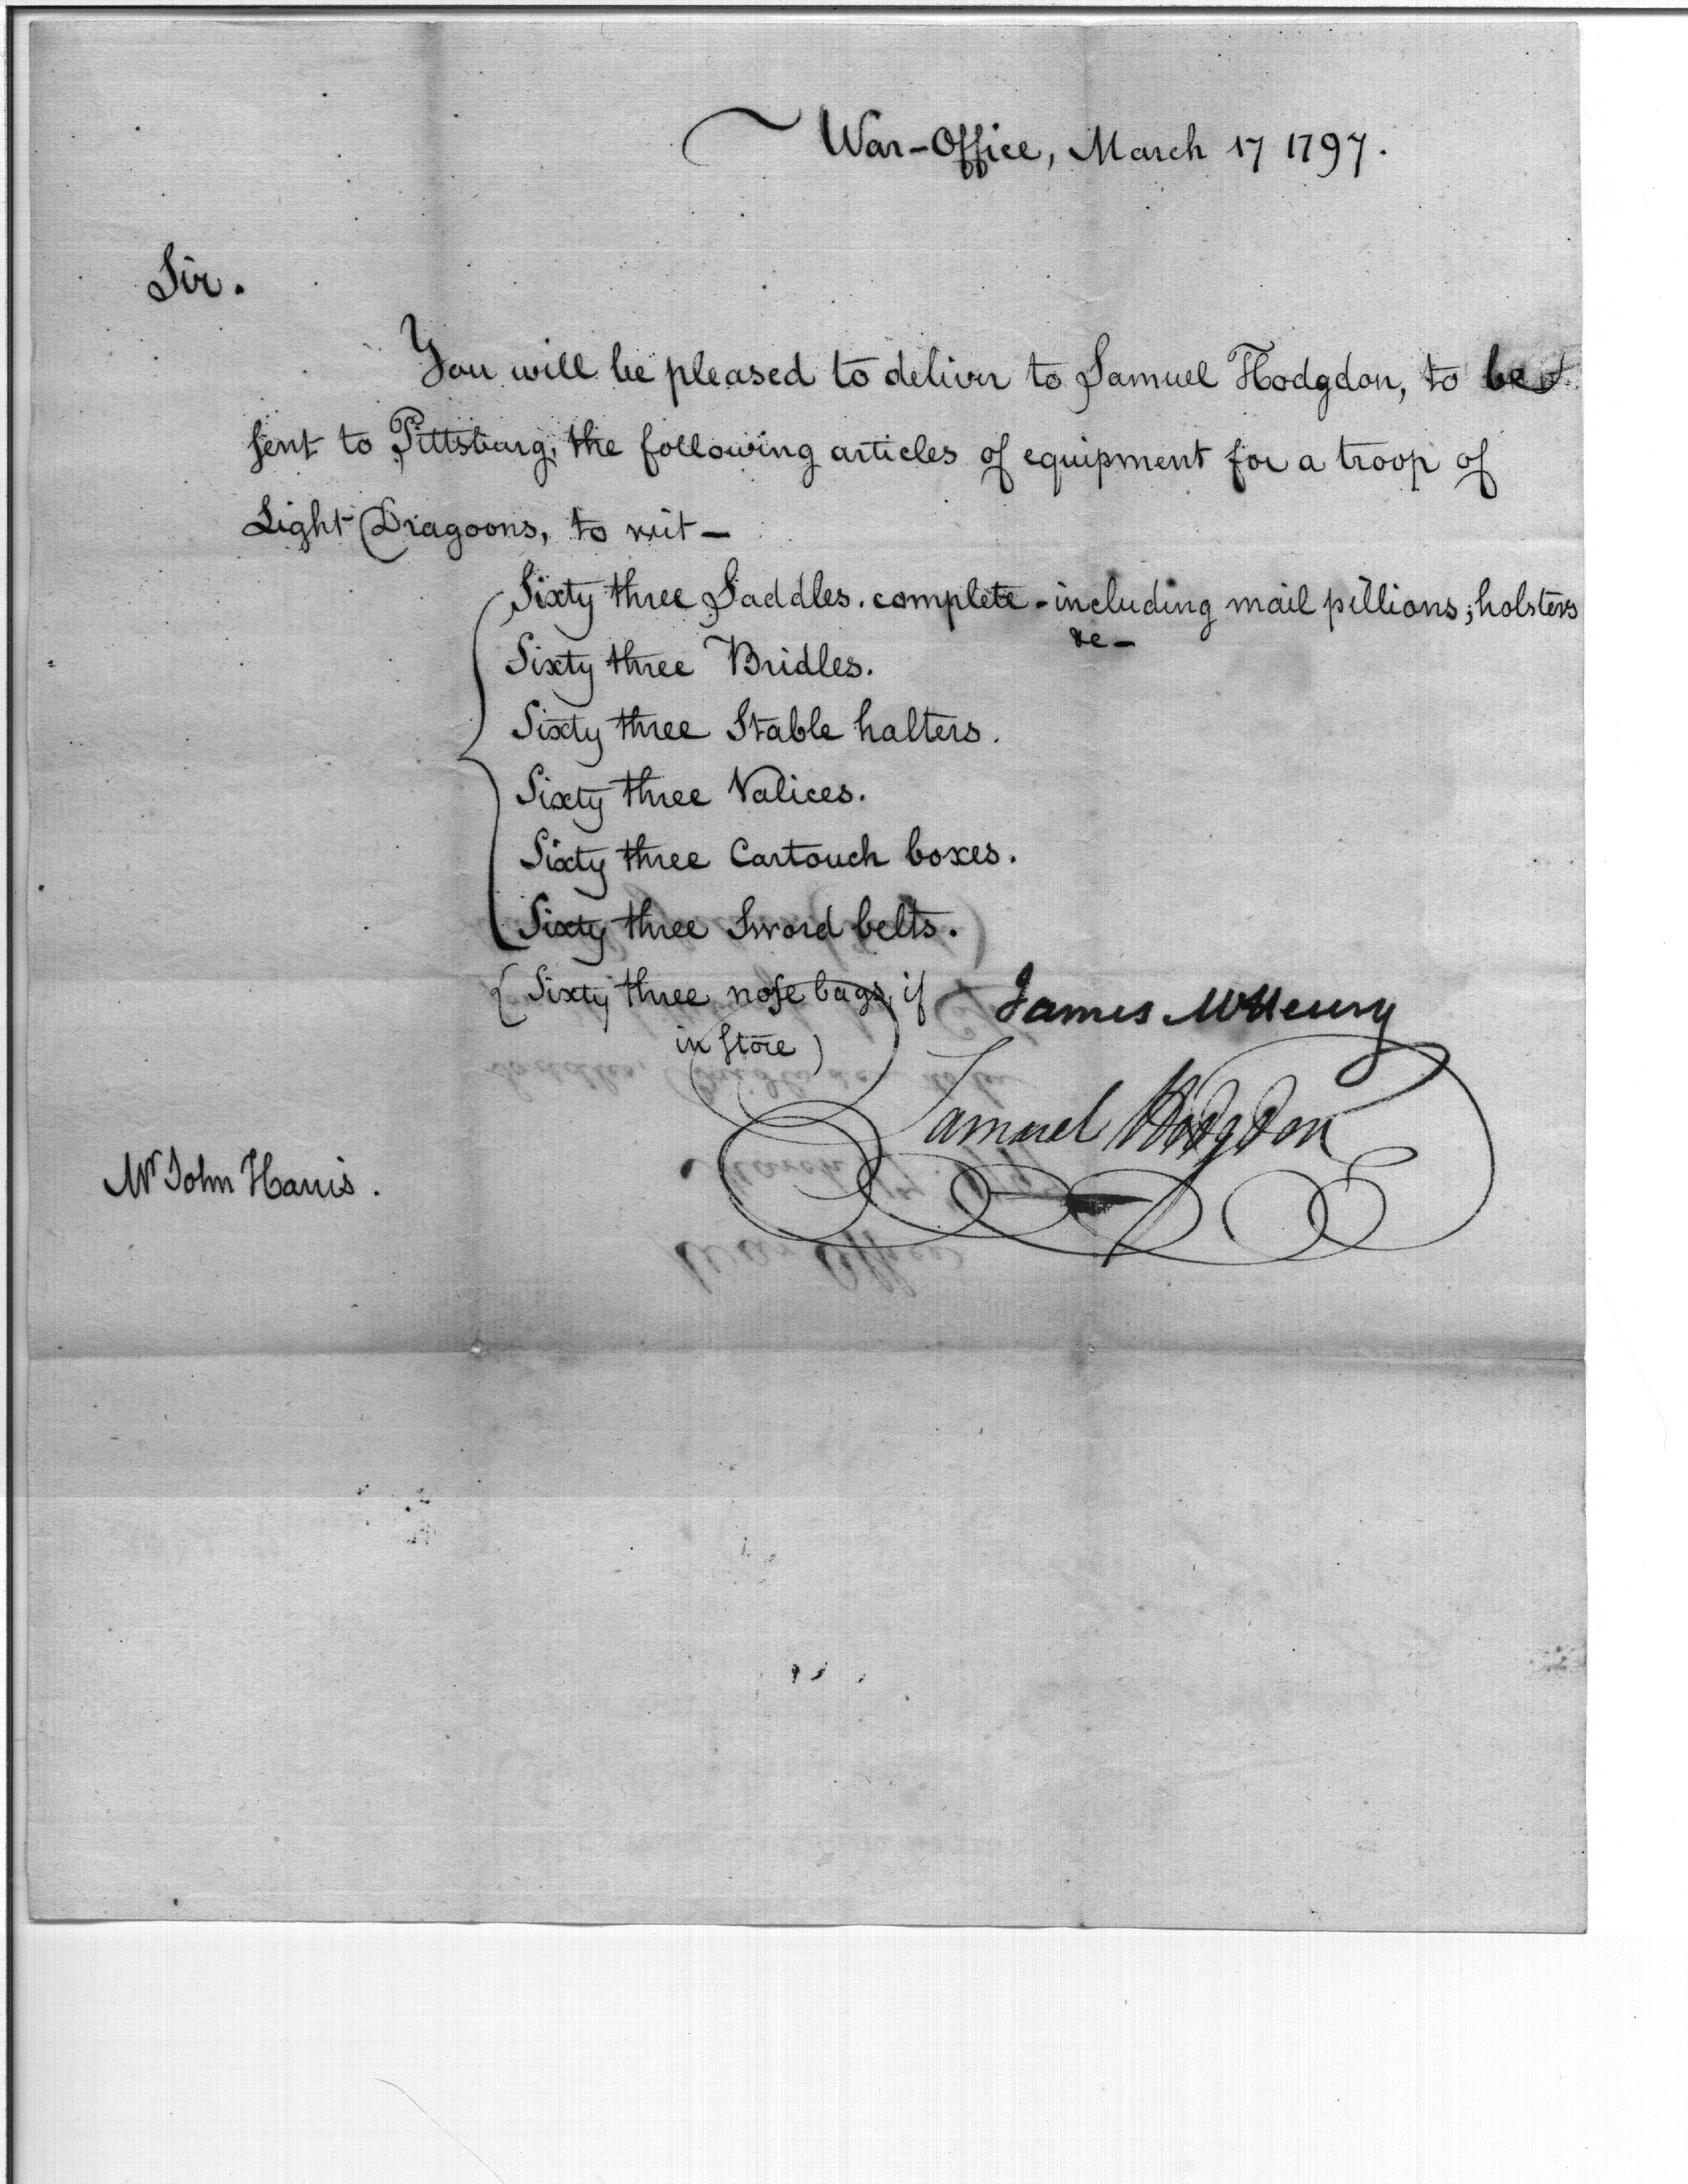 War-Office, March 17 1797.
Sir.
You will be pleased to deliver to Samuel Hodgdon, to be
sent to Pittsburg, the following articles of equipment for a troop of
Light Dragoons, to wit -
Sixty three Saddles. complete - including mail pillions, holsters
&c -
Sixty three Bridles.
Sixty three Stable halters.
Sixty three Valices.
Sixty three Cartouch boxes.
Sixty three Sword belts.
(Sixty three nose bags, if
in Store)
James McHenry
Samuel Hodgdon
Mr John Harris.
War Office
March 17. 1797
Saddles, Bridles &c. to be